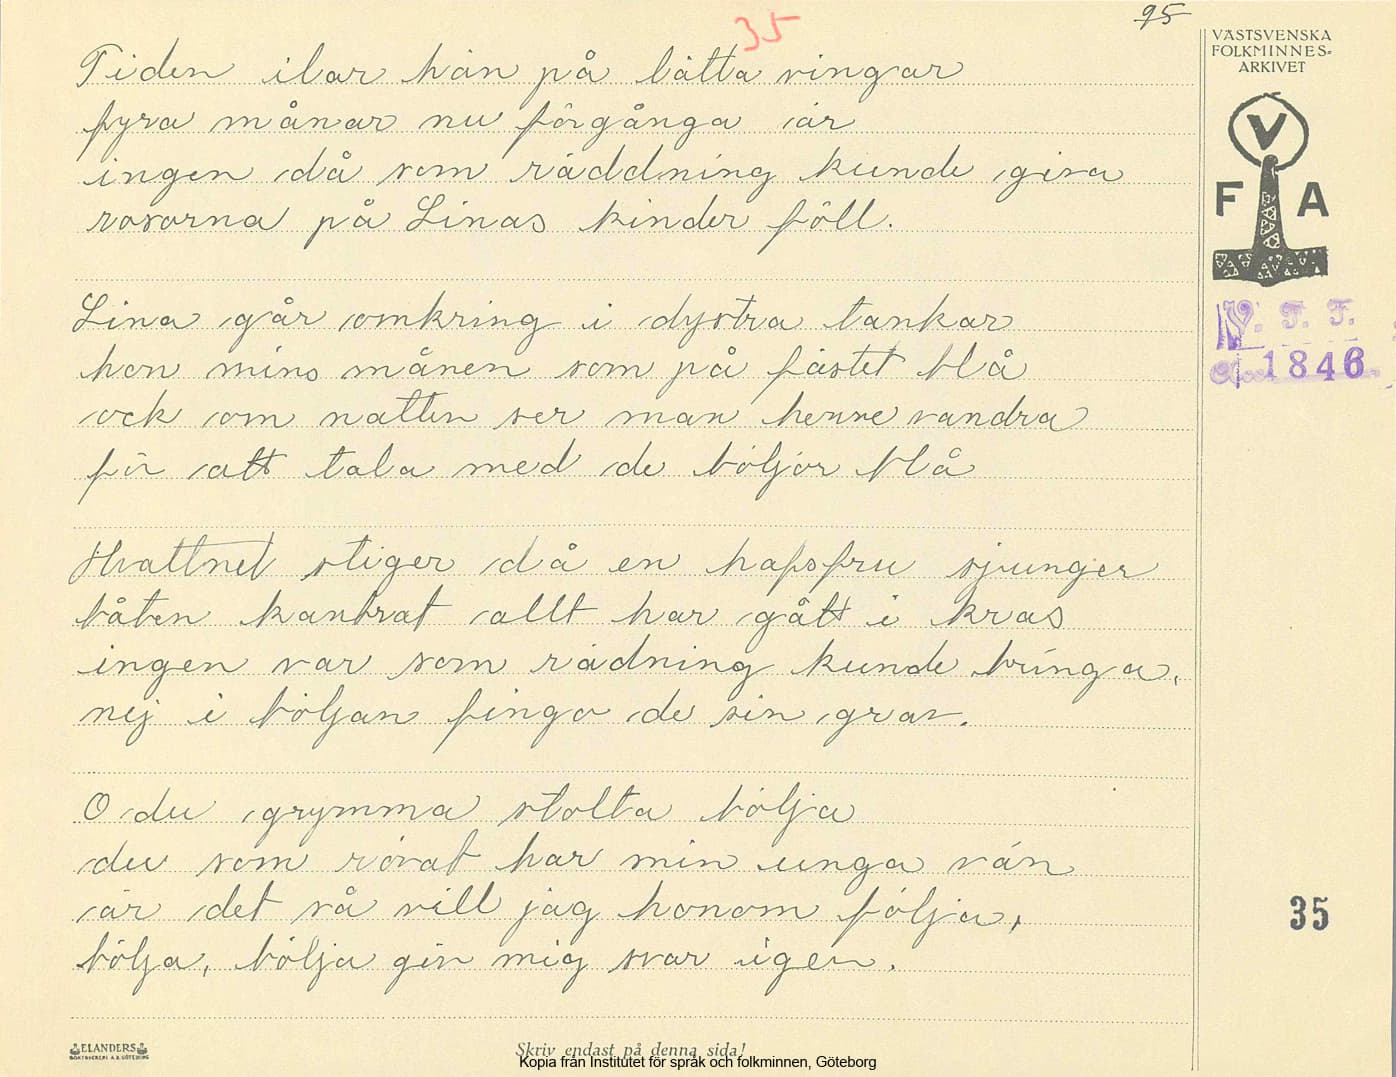 95
35
VÄSTSVENSKA
FOLKMINNES-
ARKIVET
V
F A
V. F. F.
1846
Tiden ilar hän på lätta vingar
fyra månar nu förgånga är
ingen då som räddning kunde giva
rosorna på Linas kinder föll.
Lina går omkring i dystra tankar
hon mins månen som på fästet blå
ock om natten ser man henne vandra
för att tala med de böljor blå
Hvattnet stiger då en hafsfru sjunger
båten kantrat allt har gått i kras
ingen var som rädning kunde bringa,
nej i böljan fingo de sin grav.
O du grymma stolta bölja
du som rövat har min unga vän
är det så vill jag honom följa,
bölja, bölja giv mig svar igen.
35
ELANDERS
BOKTRYCKERI A.B. GÖTEBORG
Skriv endast på denna sida!
Kopia från Institutet för språk och folkminnen, Göteborg